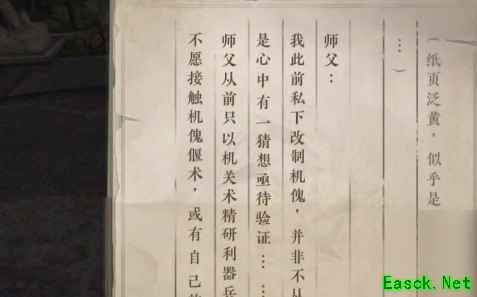 （纸页泛黄，似乎是
…）
师父：
我此前私下改制机傀，并非不从
是心中有一猜想亟待验证……
师父从前只以机关术精研利器兵
不愿接触机傀偃术，或有自己的
Easck.Net